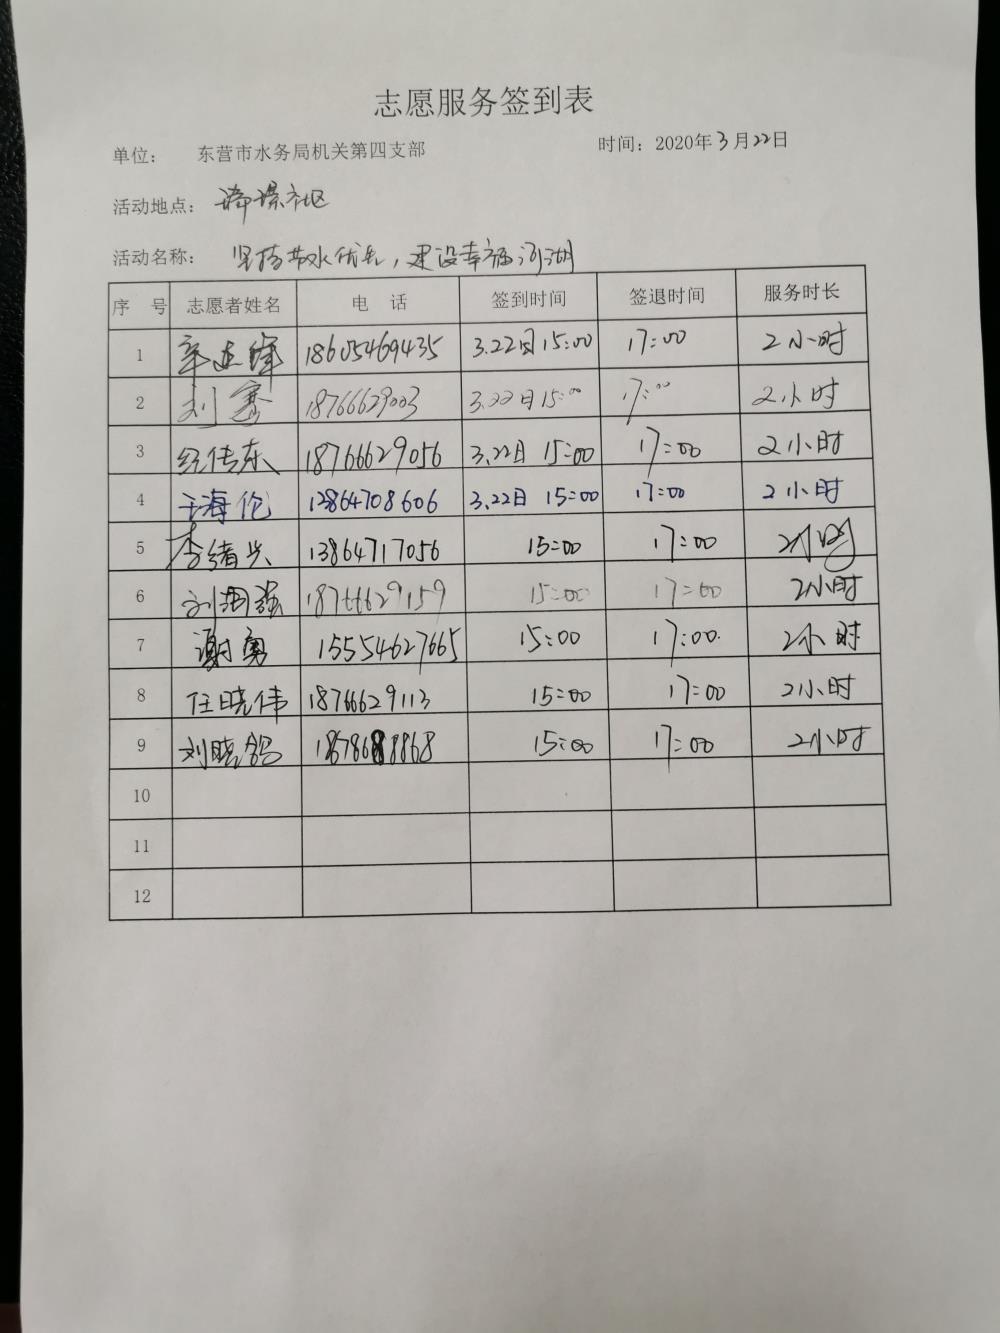 志愿服务签到表
单位： 东营市水务局机关第四支部 时间：2020年3月22日
活动地点： 社区
活动名称： 坚持节水优先，建设幸福河湖
序 号 志愿者姓名 电 话 签到时间 签退时间 服务时长
1 18605469435 3.22日 15:00 17:00 2小时
2 刘骞 18766629003 3.22日 15:00 17:00 2小时
3 传东 18766629056 3.22日 15:00 17:00 2小时
4 于海伦 13864708606 3.22日 15:00 17:00 2小时
5 李绪兴 13864717056 15:00 17:00 2小时
6 刘国强 18766629159 15:00 17:00 2小时
7 谢勇 15554627665 15:00 17:00. 2小时
8 任晓伟 18766629113 15:00 17:00 2小时
9 刘晓鸽 15:00 17:00 2小时
10
11
12